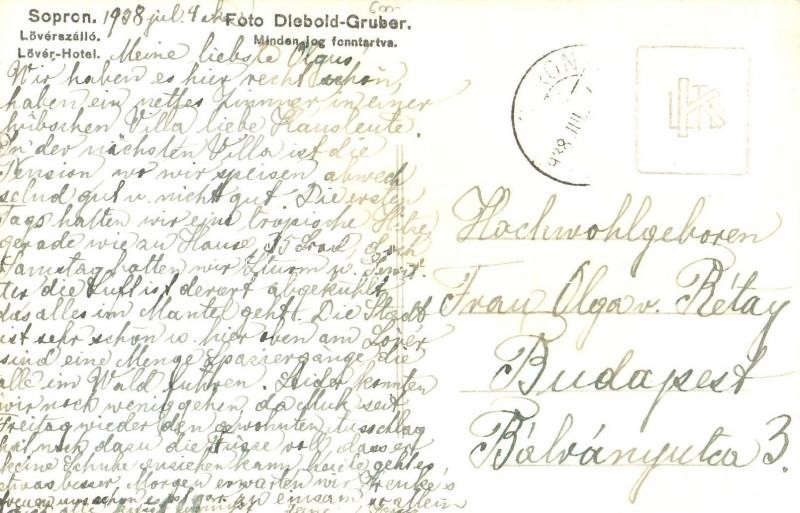 Sopron. 1938 jul. 4 én
Lövérszálló.
Lövér-Hotel.
Foto Diebold-Gruber.
Minden jog fenntartva.
Meine liebste Olgus!
Wir haben es hier recht schön,
haben ein nettes Zimmer in einer
hübschen Villa liebe Hausleute.
In der nächsten Villa ist die
Pension wo wir speisen abwech
selnd gut u. nicht gut. Die ersten
Tags hatten wir eine tropische Hitze
gerade wie zu Hause, 35 Grad, doch
Samstag hatten wir Sturm u. Gewit
ter die Luft ist derart abgekühlt
das alles im Mantel geht. Die Stadt
ist sehr schön u. hier oben am Löver
sind eine Menge Spaziergänge die
alle im Wald führen. Leider konnten
wir noch wenig gehen, da Muk seit
Freitag wieder den gewohnten Ausschlag
hat noch dazu die Füsse voll dass er
keine Schuhe anziehen kann, heute geht es
etwas besser. Morgen erwarten wir
uns schon es ist gar zu einsam so allein
938. JUL.
Hochwohlgeboren
Frau Olga v. Rétay
Budapest
Bálványutca 3.